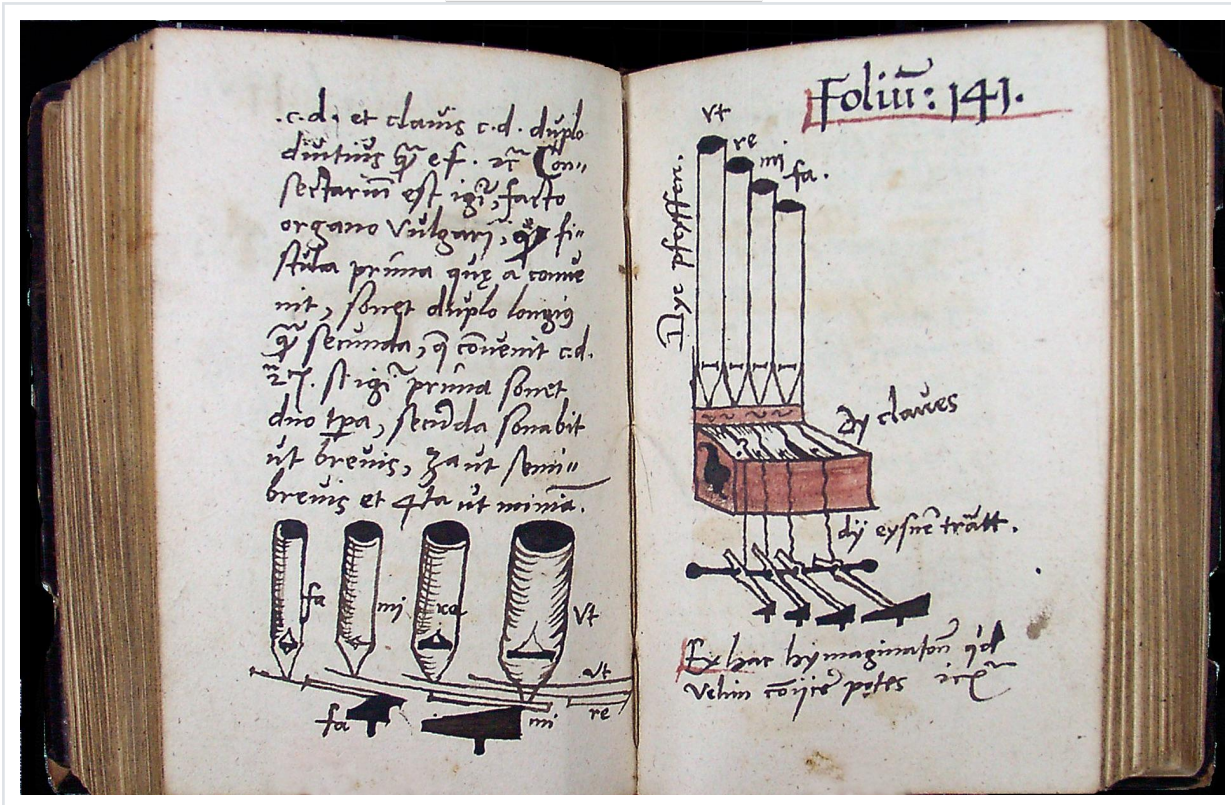 .c.d. et clavis c.d. duplo
diutius q̄ꝫ e f. ⁊c̄ Con=
sectariū est igr̄, facto
organo vulgari, fi=
stula prima quę a conve
nit, sonet duplo longiꝰ
q̄ꝫ secunda, q̄ cōvenit c.d.
si igr̄ prima sonet
duo tp̄a, secūda sonabit
ut brevis, 3a ut semi=
brevis et 4ta ut minīa.
fa
mi
re
vt
vt
re
fa
mi
Foliū: 141.
vt
re
mi
fa.
Dye pfeyffen.
dy claves
dÿ eysnē trātt.
Ex hac hymaginatōne qͥd
velim cōijcē potes